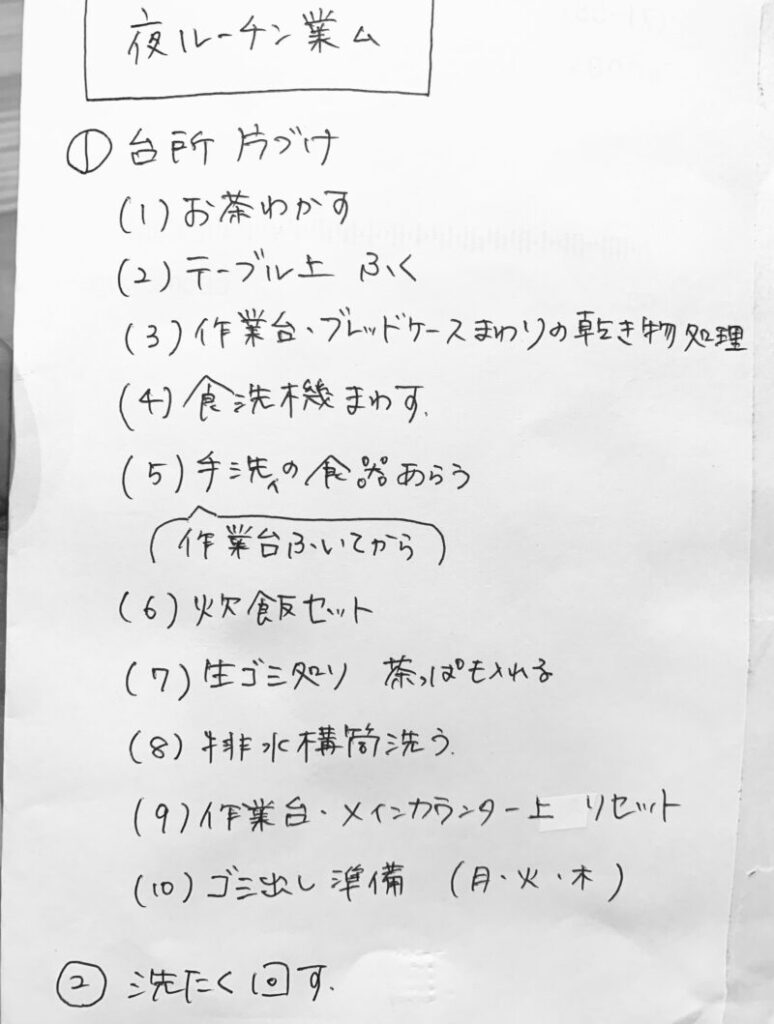 夜ルーチン業ム
① 台所 片づけ
(1) お茶わかす
(2) テーブル上 ふく
(3) 作業台・ブレッドケースまわりの乾き物処理
(4) 食洗機まわす.
(5) 手洗いの食器あらう
(作業台ふいてから)
(6) 炊飯セット
(7) 生ゴミ処り 茶っぱも入れる
(8) 排水構筒洗う.
(9) 作業台・メインカウンター上 リセット
(10) ゴミ出し準備 (月・火・木)
② 洗たく回す.